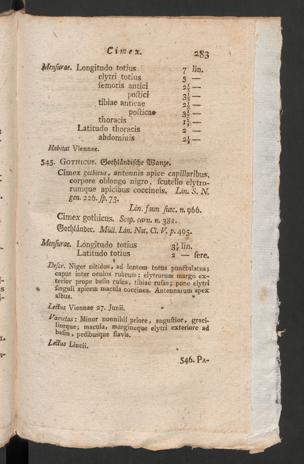 Cimex. 283
Mensurae. Longitudo totius 7 lin.
elytri totius 5 —
femoris antici 2½ —
postici 3½ —
tibiae anticae 2½ —
posticae 3½ —
thoracis 1½ —
Latitudo thoracis 2 —
abdominis 2½ —
Habitat Viennae.
545. GOTHICUS. Gothländische Wanze.
Cimex gothicus, antennis apice capillaribus,
corpore oblongo nigro, scutello elytro-
rumque apicibus coccineis. Lin. S. N.
gen. 226. sp. 73.
Lin. faun suec. n. 966.
Cimex gothicus. Scop. carn. n. 382.
Gothländer. Müll. Lin. Nat. Cl. V. p. 495.
Mensurae. Longitudo totius 3½ lin.
Latitudo totius 2 — fere.
Descr. Niger nitidus, ad lentem totus punctulatus;
caput inter oculos rubrum; elytrorum margo ex-
terior prope basin rufus, tibiae rufae; pone elytri
singuli apicem macula coccinea. Antennarum apex
albus.
Lectus Viennae 27. Junii.
Varietas: Minor nonnihil priore, angustior, graci-
liorque; macula, margineque elytri exteriore ad
basin, pedibusque flavis.
Lectus Lincii.
546. PA-